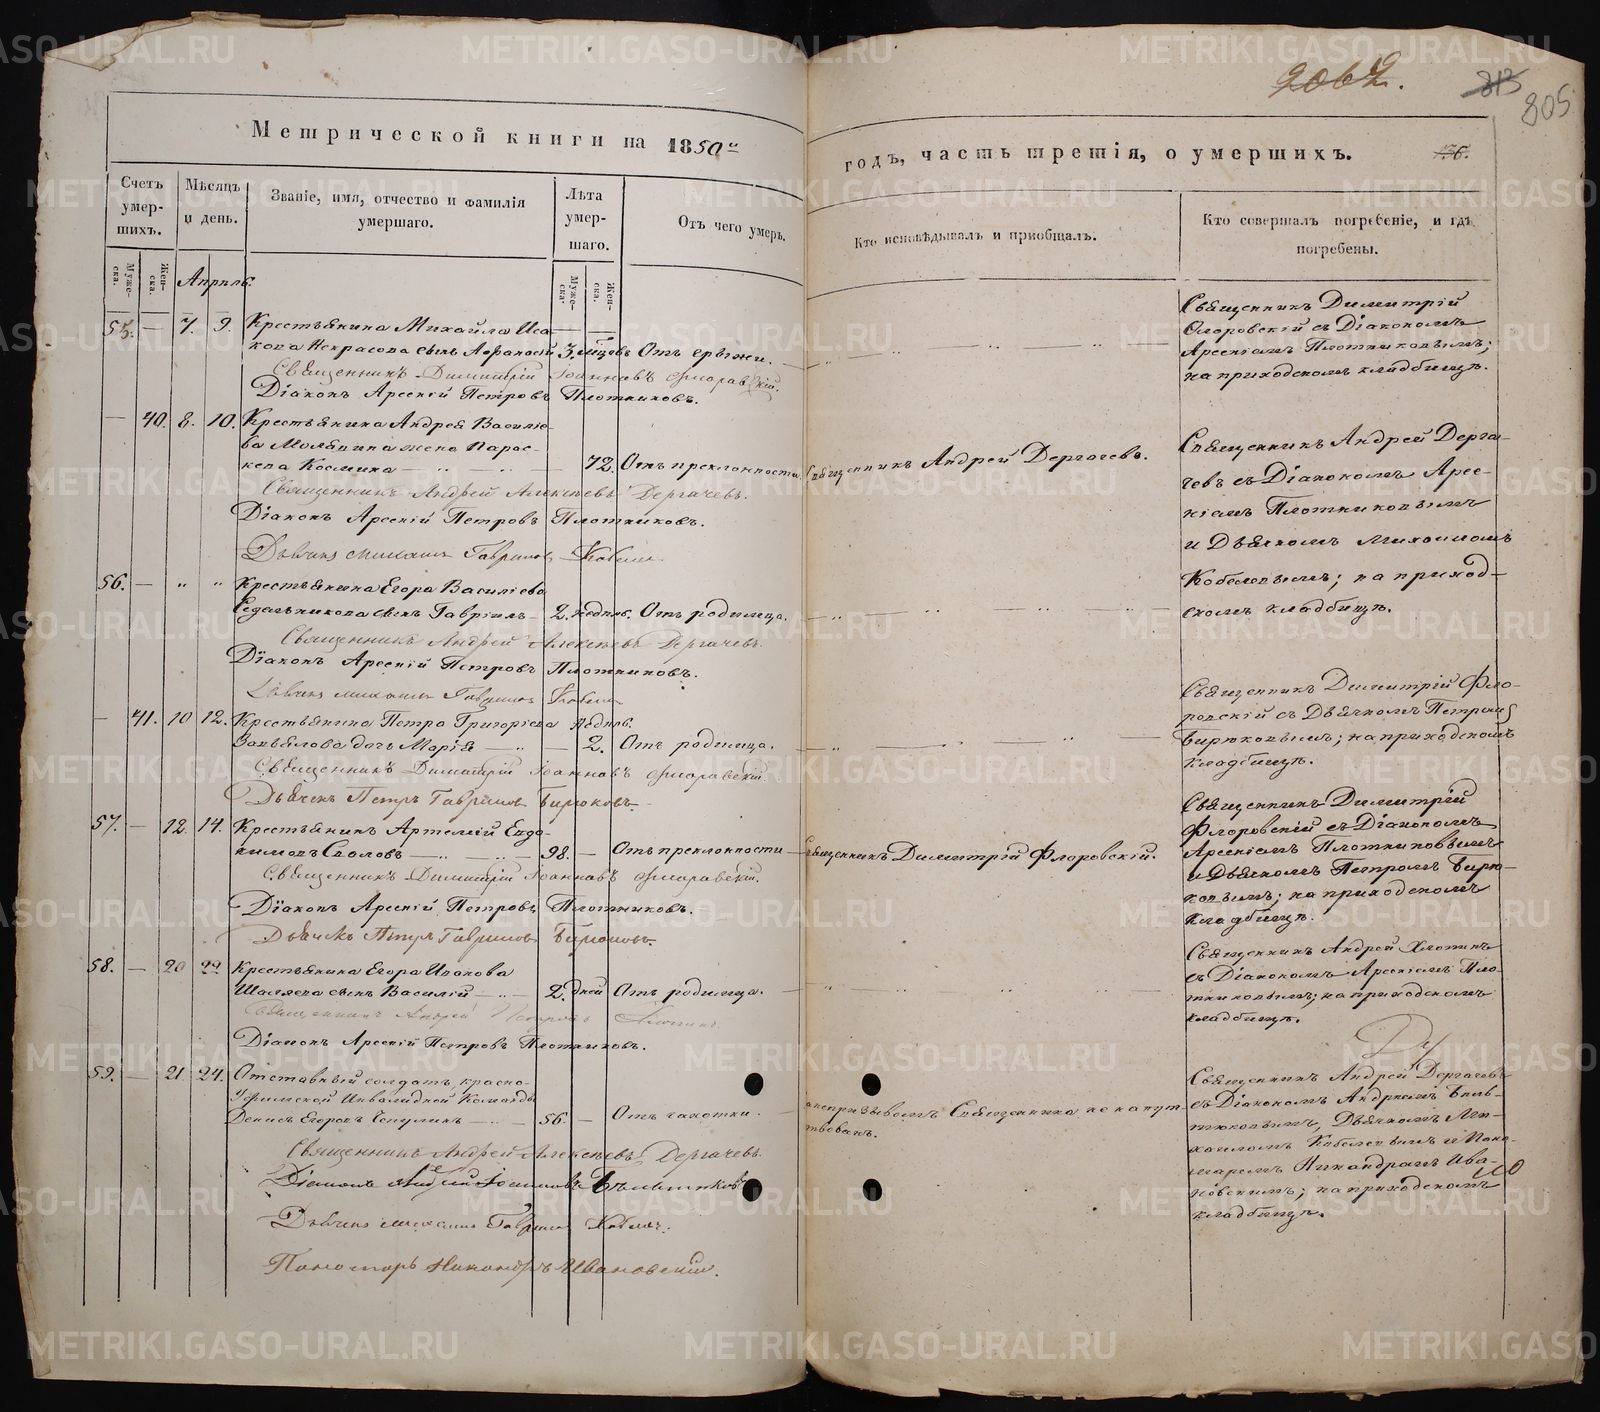 Метрической книги на 1850й
годъ, часть третія, о умершихъ.
805
Счетъ умер-
шихъ.
Мѣсяцъ
и день.
Званіе, имя, отчество и фамилія
умершаго.
Лѣта
умер-
шаго.
Отъ чего умеръ.
Кто исповѣдывалъ и пріобщалъ.
Кто совершалъ погребеніе, и гдѣ
погребены.
Муже-
ска.
Жен-
ска.
Апрель.
Муже-
ска.
Жен-
ска.
55. — 7. 9. Крестьянина Михайла Иса-
кова Некрасова сынъ Афанасій 3. мѣсцовъ Отъ грыжи.
Священникъ Димитрій Іоанновъ Флоровскій.
Діаконъ Арсеній Петровъ Плотниковъ.
Священникъ Димитрій
Флоровскій съ Діакономъ
Арсеніемъ Плотниковымъ;
на приходскомъ кладбищѣ.
— 40. 8. 10. Крестьянина Андрея Василье-
ва жена Парас-
кева Космина — 72. Отъ преклонности Священникъ Андрей Дергачевъ.
Священникъ Андрей Алексѣевъ Дергачевъ.
Діаконъ Арсеній Петровъ Плотниковъ.
Дьячекъ Михаилъ Гавриловъ
Священникъ Андрей Дерга-
чевъ съ Діакономъ Арсе-
ніемъ Плотниковымъ
и Дьячкомъ Михаиломъ
Кобелевымъ; на приход-
скомъ кладбищѣ.
56. — " " Крестьянина Егора Васильева
Седельникова сынъ Гавріилъ — 2. недѣль. Отъ родимца.
Священникъ Андрей Алексѣевъ Дергачевъ.
Діаконъ Арсеній Петровъ Плотниковъ.
Дьячекъ Михаилъ Гавриловъ
— 41. 10 12. Крестьянина Петра Григорьева недѣль.
дочь Марія — 2. Отъ родимца.
Священникъ Димитрій Іоанновъ Флоровскій.
Дьячекъ Петръ Гавриловъ Бирюковъ.
Священникъ Димитрій Фло-
ровскій съ Дьячкомъ Петромъ
Бирюковымъ; на приходскомъ
кладбищѣ.
57. — 12. 14. Крестьянинъ Артемій Евдо-
кимовъ — 98. — Отъ преклонности — Священникъ Димитрій Флоровскій.
Священникъ Димитрій Іоанновъ Флоровскій.
Діаконъ Арсеній Петровъ Плотниковъ.
Дьячекъ Петръ Гавриловъ Бирюковъ.
Священникъ Димитрій
Флоровскій съ Діакономъ
Арсеніемъ Плотниковымъ
и Дьячкомъ Петромъ Бирю-
ковымъ; на приходскомъ
кладбищѣ.
58. — 20 22 Крестьянина Егора Иванова
сынъ Василій — 2. дней Отъ родимца.
Священникъ Андрей Хлопинъ
Діаконъ Арсеній Петровъ Плотниковъ.
Священникъ Андрей Хлопинъ
съ Діакономъ Арсеніемъ Пло-
тниковымъ; на приходскомъ
кладбищѣ.
59. — 21. 24. Отставный солдатъ, красно-
уфимской Инвалидной Команды
Денисъ Егоровъ — 56. — Отъ чахотки.
Священника не напут-
ствованъ.
Священникъ Андрей Алексѣевъ Дергачевъ
Дьячекъ Михаилъ Гавриловъ
Пономарь Никандръ Ивановскій.
Священникъ Андрей Дергачевъ
съ Діакономъ Андреемъ
Дьячкомъ Ми-
хаиломъ Кобелевымъ и Поно-
маремъ Никандромъ Ива-
новскимъ; на приходскомъ
кладбищѣ.